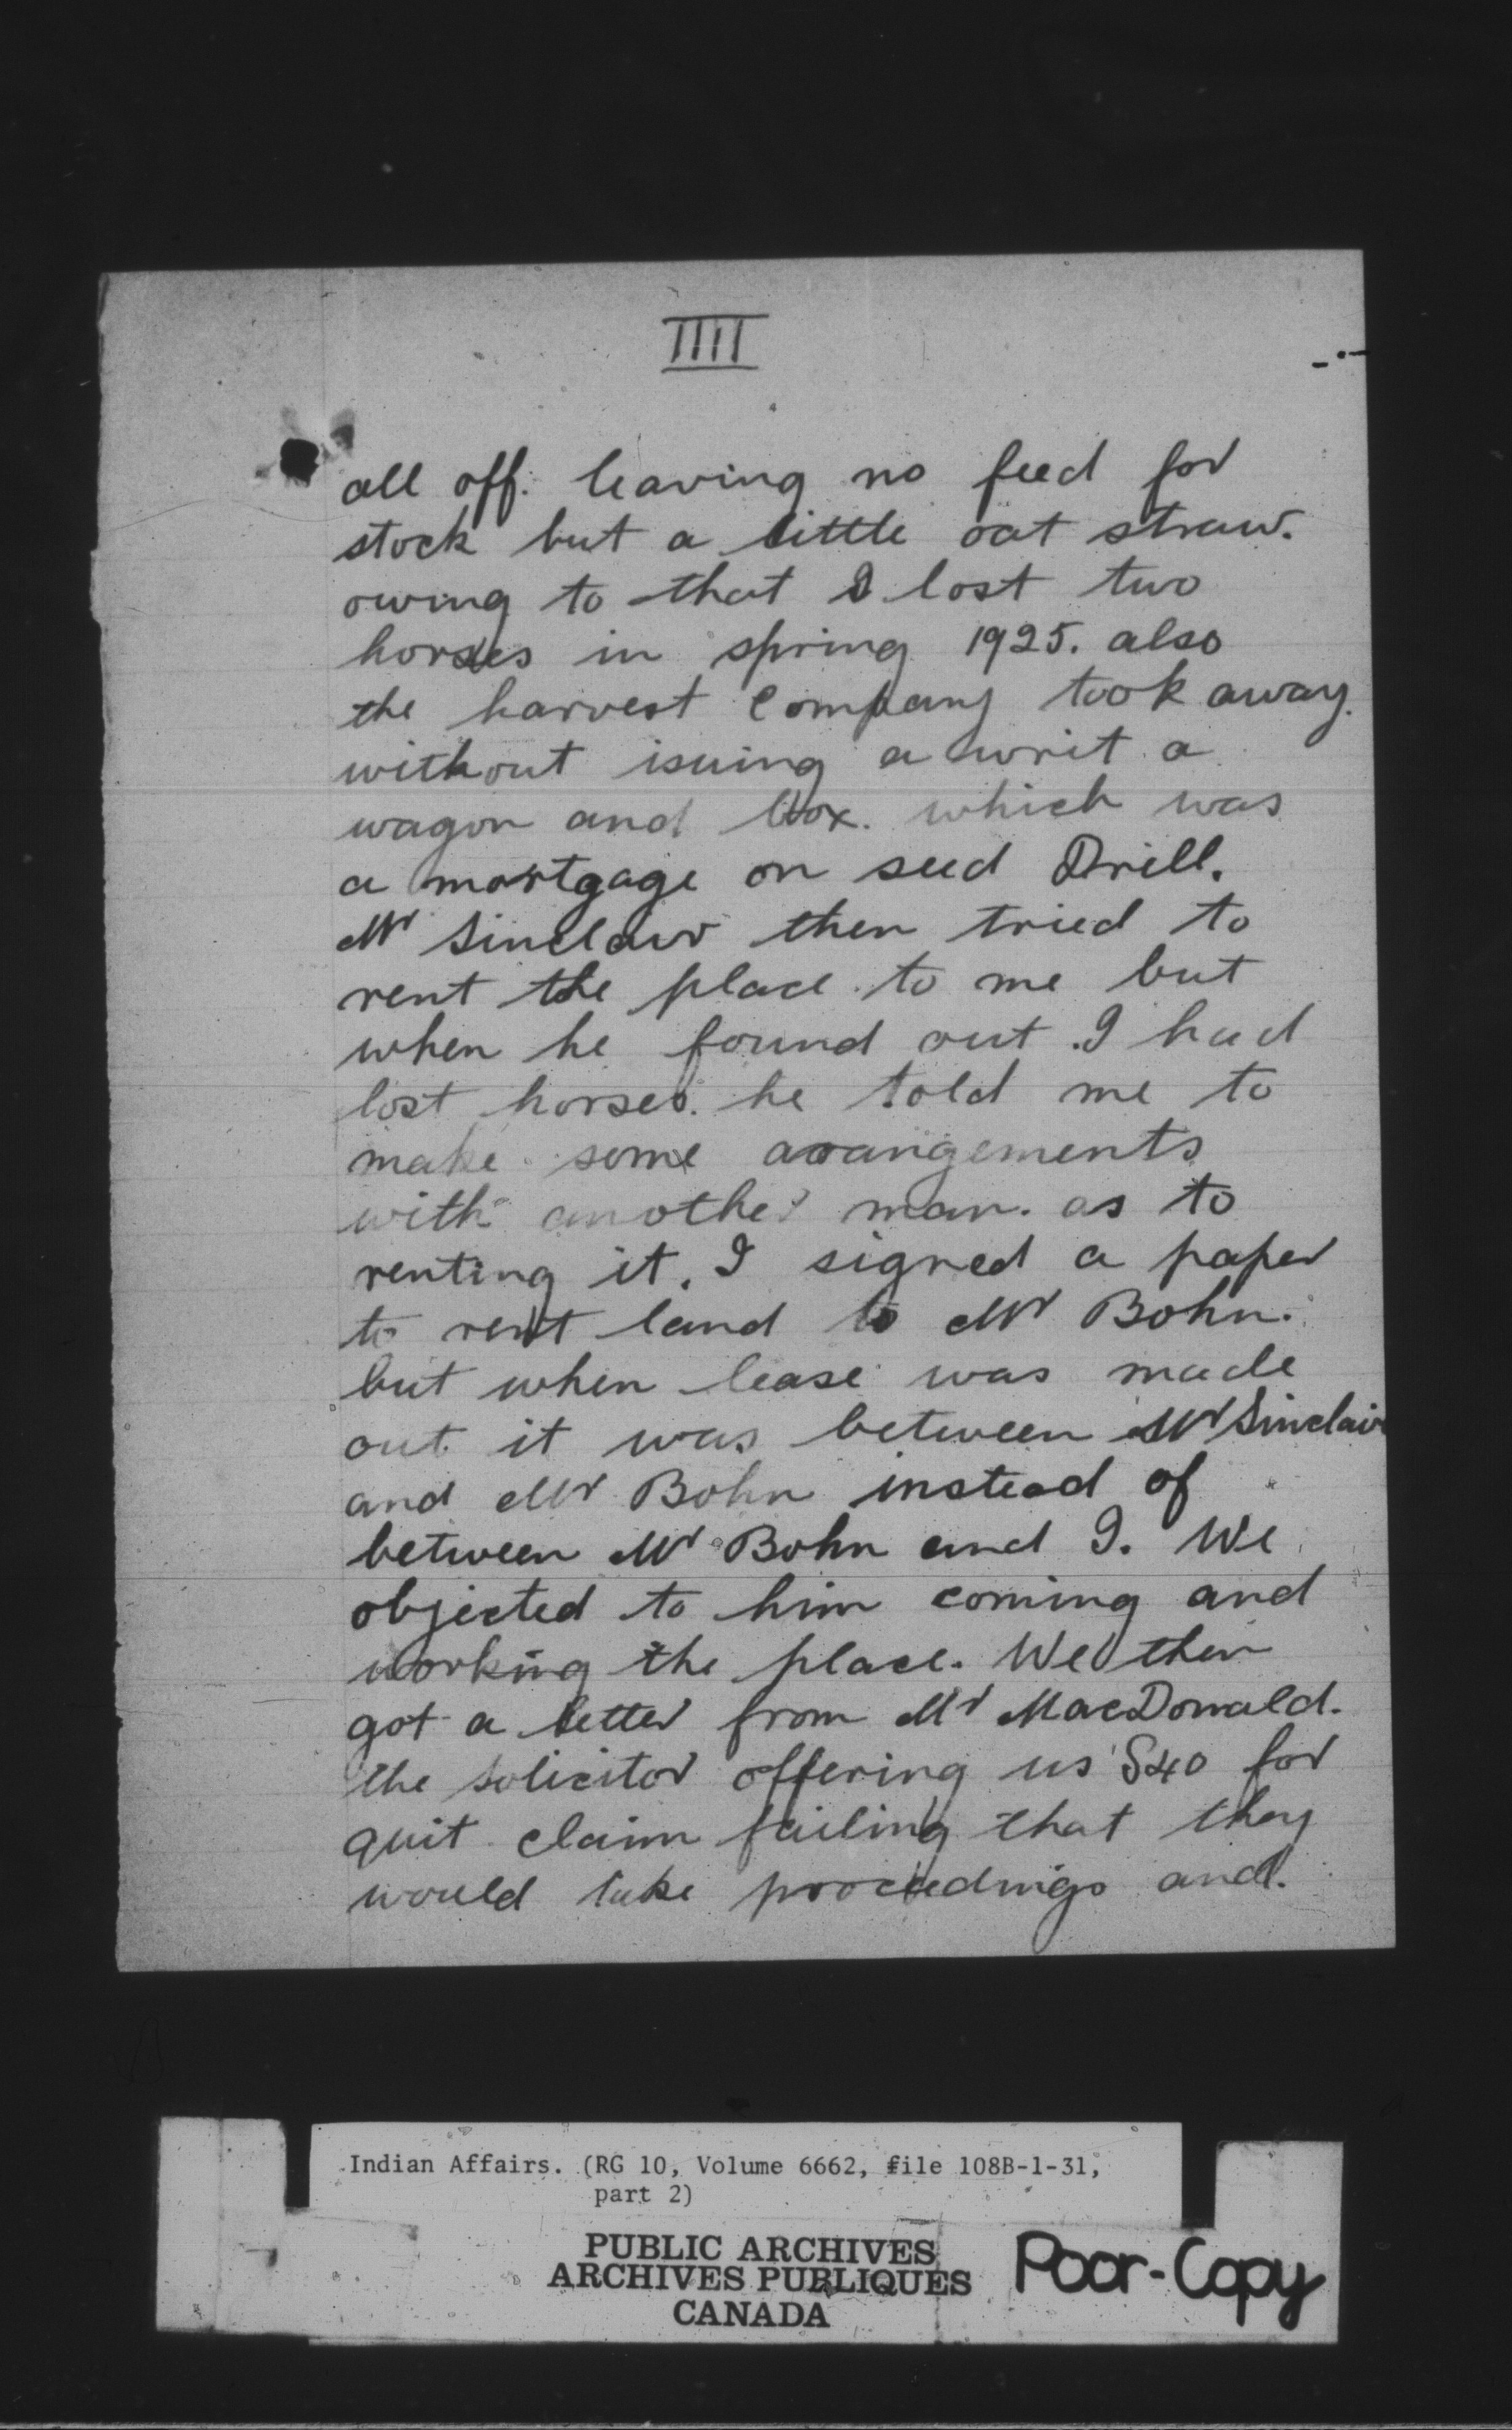 IIII
all off. leaving no feed for
stock but a little oat straw.
owing to that I lost two
horses in spring 1925. also
the harvest Company took away.
without isuing a writ a
wagon and box. which was
a mortgage on seed Drill.
Mr Sinclair then tried to
rent the place to me but
when he found out I had
lost horses. he told me to
make some arangements
with another man. as to
renting it. I signed a paper
to rent land to Mr Bohn.
but when lease was made
out it was between Mr Sinclair
and Mr Bohn instead of
between Mr Bohn and I. We
objected to him coming and
working the place. We then
got a letter from Mr MacDonald.
the solicitor offering us $40 for
quit claim failing that they
would take proceedings and.
Indian Affairs. (RG 10, Volume 6662, file 108B-1-31,
part 2)
PUBLIC ARCHIVES
ARCHIVES PUBLIQUES
CANADA
Poor-Copy